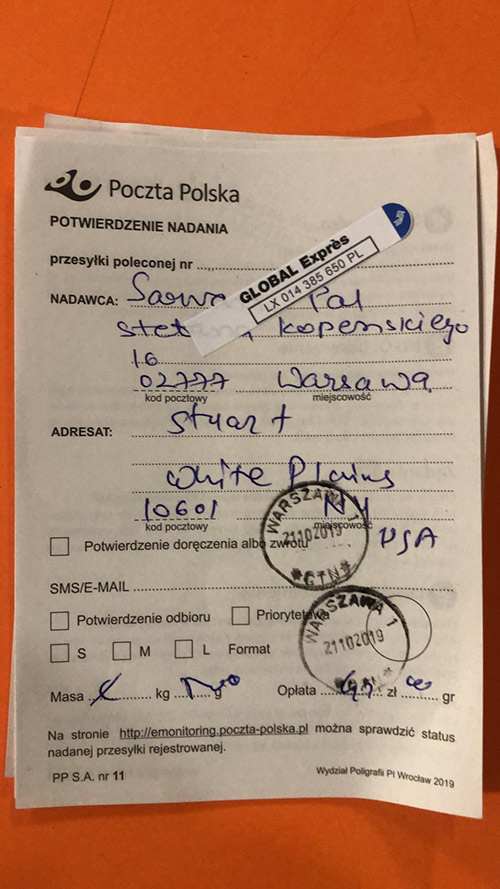 Poczta Polska
POTWIERDZENIE NADANIA
przesyłki poleconej nr
GLOBAL Exprès
LX 014 385 650 PL
NADAWCA: Pal
Kopenskiego
16
02777 Warsawa
kod pocztowy miejscowość
ADRESAT: Stuart
White Plains
10601 NY
kod pocztowy miejscowość
USA
Potwierdzenie doręczenia albo zwrotu
WARSZAWA 1
21102019
*GTN*
SMS/E-MAIL
Potwierdzenie odbioru Priorytetowa
S M L Format
WARSZAWA 1
21102019
Masa kg Opłata zł gr
Na stronie http://emonitoring.poczta-polska.pl można sprawdzić status
nadanej przesyłki rejestrowanej.
PP S.A. nr 11 Wydział Poligrafii PI Wrocław 2019